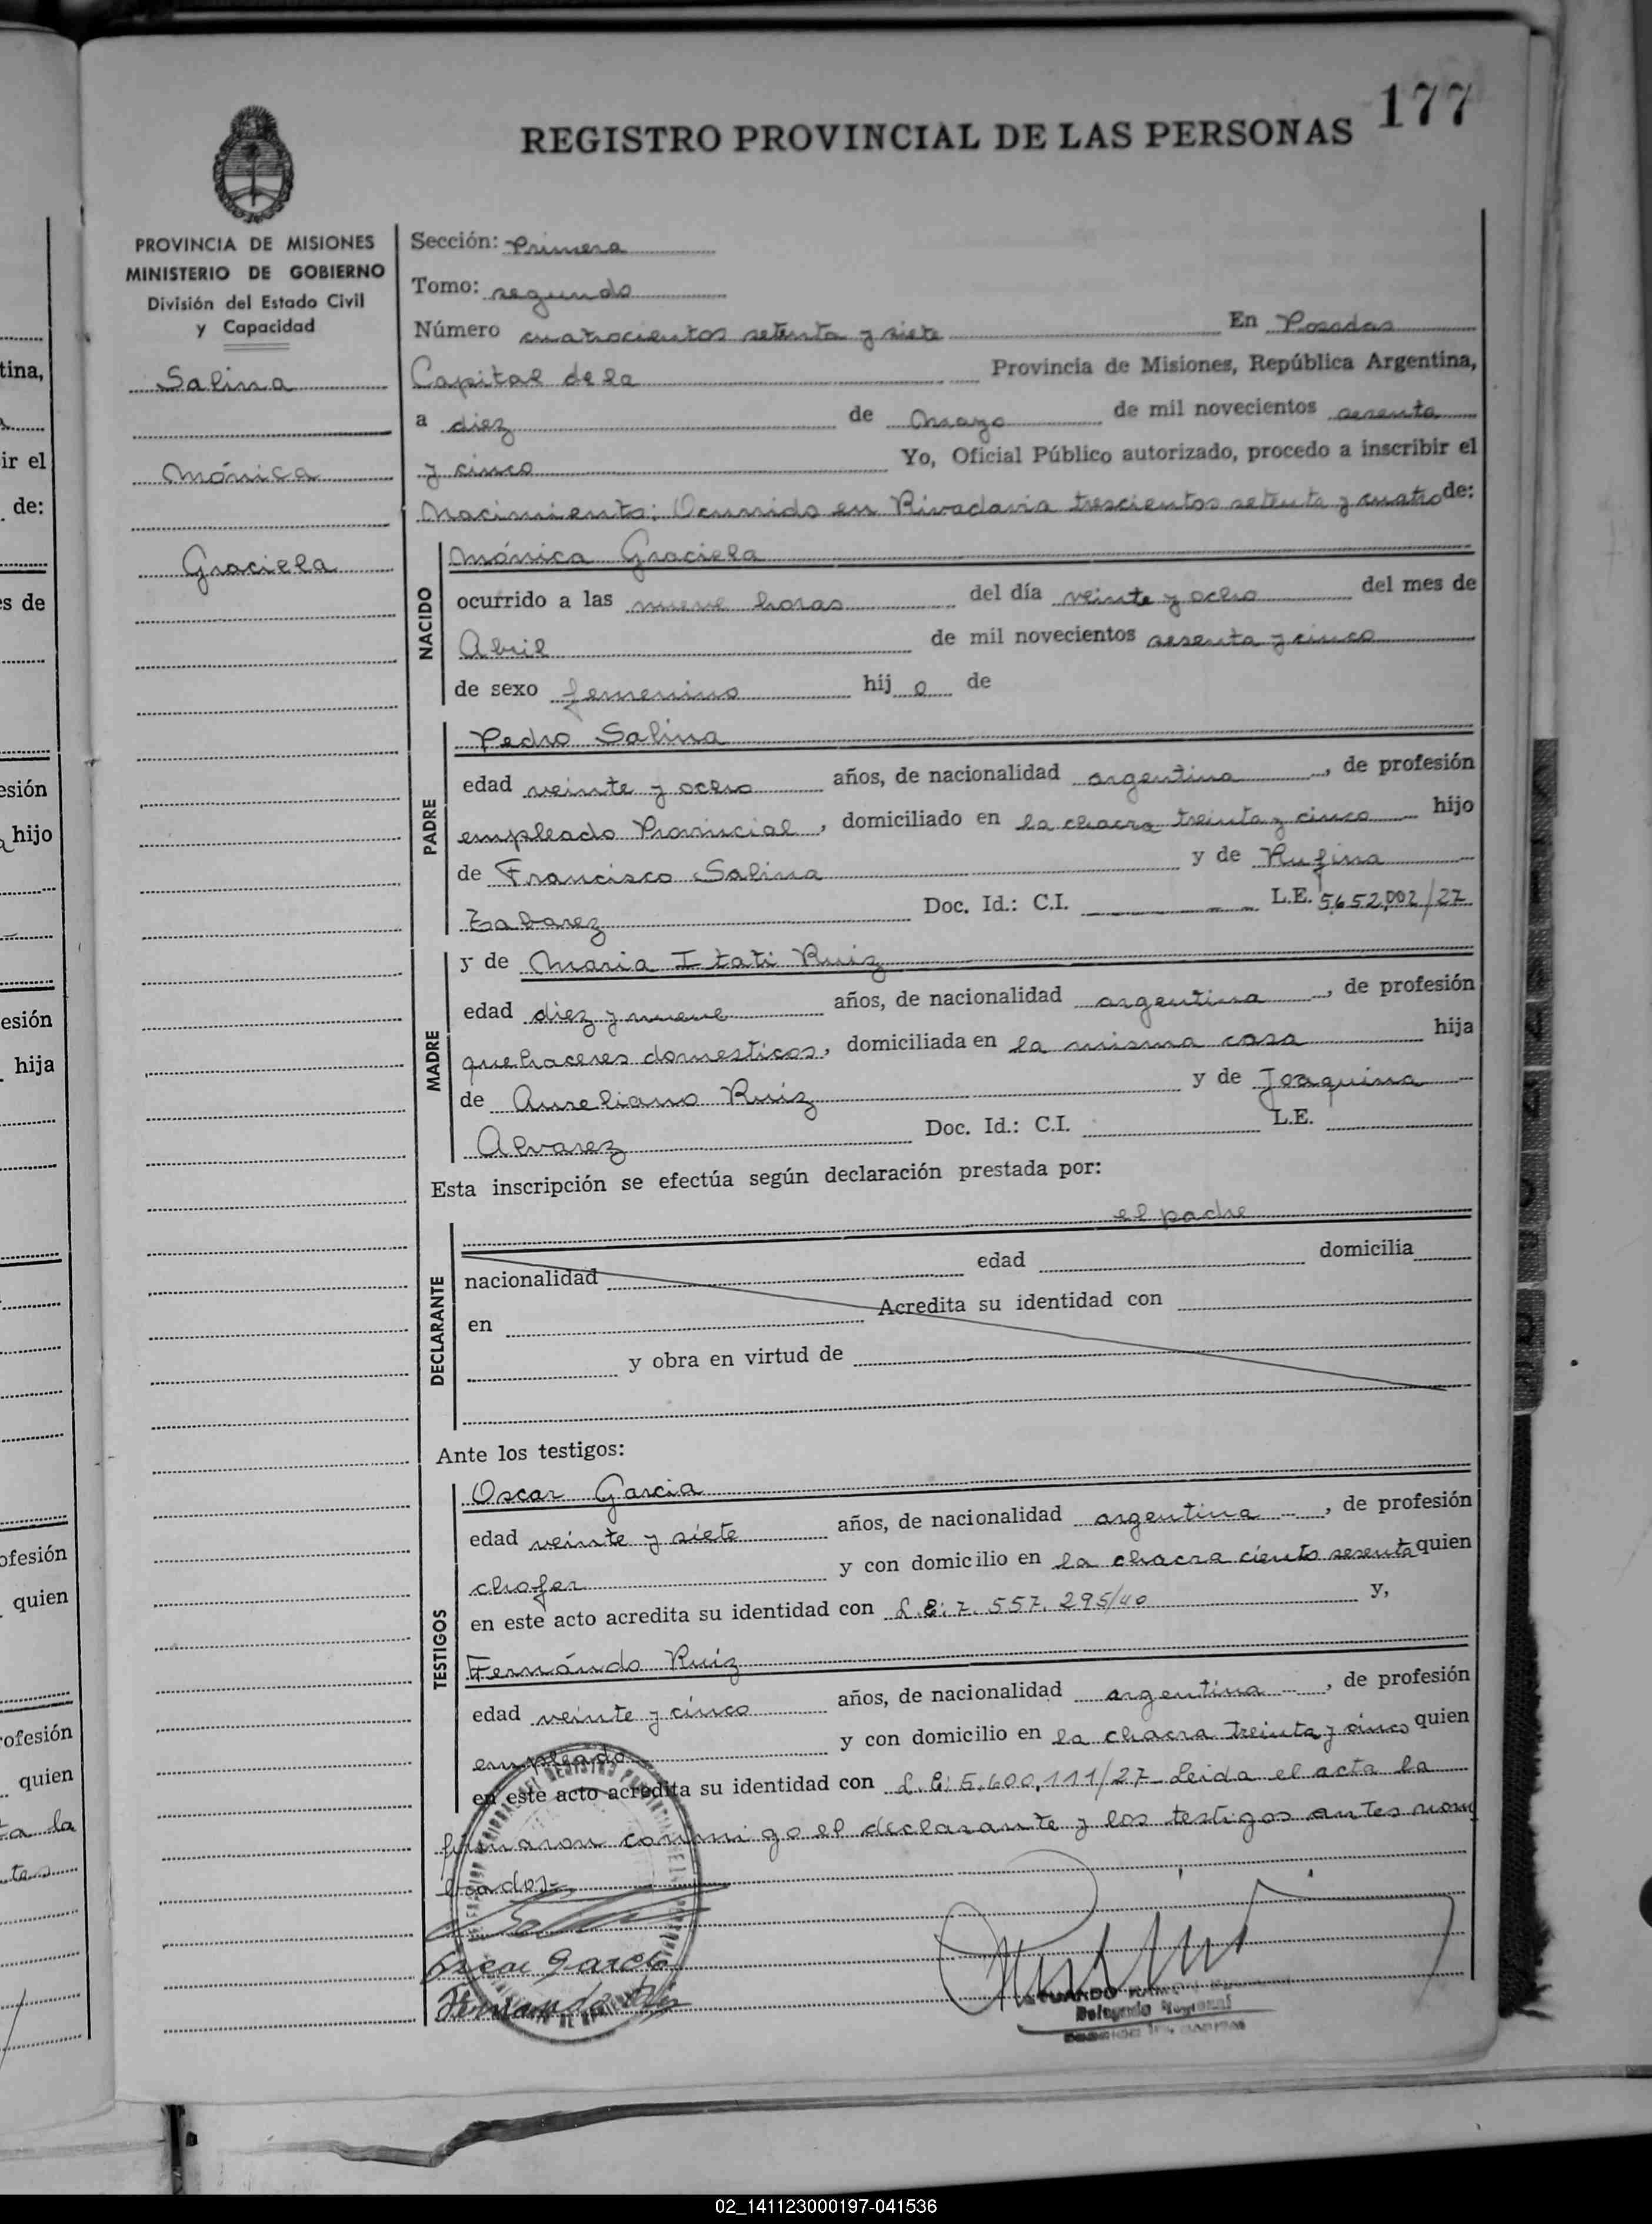 177
REGISTRO PROVINCIAL DE LAS PERSONAS
PROVINCIA DE MISIONES
MINISTERIO DE GOBIERNO
División del Estado Civil
y Capacidad
Salina
Mónica
Graciela
Sección: Primera
Tomo: segundo
Número cuatrocientos setenta y siete En Posadas
Capital de la Provincia de Misiones, República Argentina,
a diez de Mayo de mil novecientos sesenta
y cinco Yo, Oficial Público autorizado, procedo a inscribir el
Nacimiento: Ocurrido en Rivadavia trescientos setenta y cuatro de:
NACIDO
Mónica Graciela
ocurrido a las nueve horas del día veinte y ocho del mes de
Abril de mil novecientos sesenta y cinco
de sexo femenino hij a de
PADRE
Pedro Salina
edad veinte y ocho años, de nacionalidad argentina, de profesión
empleado Provincial, domiciliado en la chacra treinta y cinco hijo
de Francisco Salina y de Rufina
Zabarez Doc. Id.: C.I. L.E. 5.652.002/27
MADRE
y de Maria Itati Ruiz
edad diez y nueve años, de nacionalidad argentina, de profesión
quehaceres domesticos, domiciliada en la misma casa hija
de Aureliano Ruiz y de Joaquina
Alvarez Doc. Id.: C.I. L.E.
Esta inscripción se efectúa según declaración prestada por:
DECLARANTE
el padre
nacionalidad edad domicilia
en Acredita su identidad con
y obra en virtud de
Ante los testigos:
TESTIGOS
Oscar Garcia
edad veinte y siete años, de nacionalidad argentina, de profesión
chofer y con domicilio en la chacra ciento sesenta quien
en este acto acredita su identidad con L.E: 7.557.295/40 y,
Fernándo Ruiz
edad veinte y cinco años, de nacionalidad argentina, de profesión
empleado y con domicilio en la chacra treinta y cinco quien
en este acto acredita su identidad con L.E: 5.600,111/27 Leida el acta la
firmaron conmigo el declarante y los testigos antes nom
brados.
Oscar Garcia
Fernando Ruiz
Delegado Regional
tina,
ir el
de:
es de
esión
hijo
esión
hija
ofesión
quien
rofesión
quien
ta la
tes
02_141123000197-041536